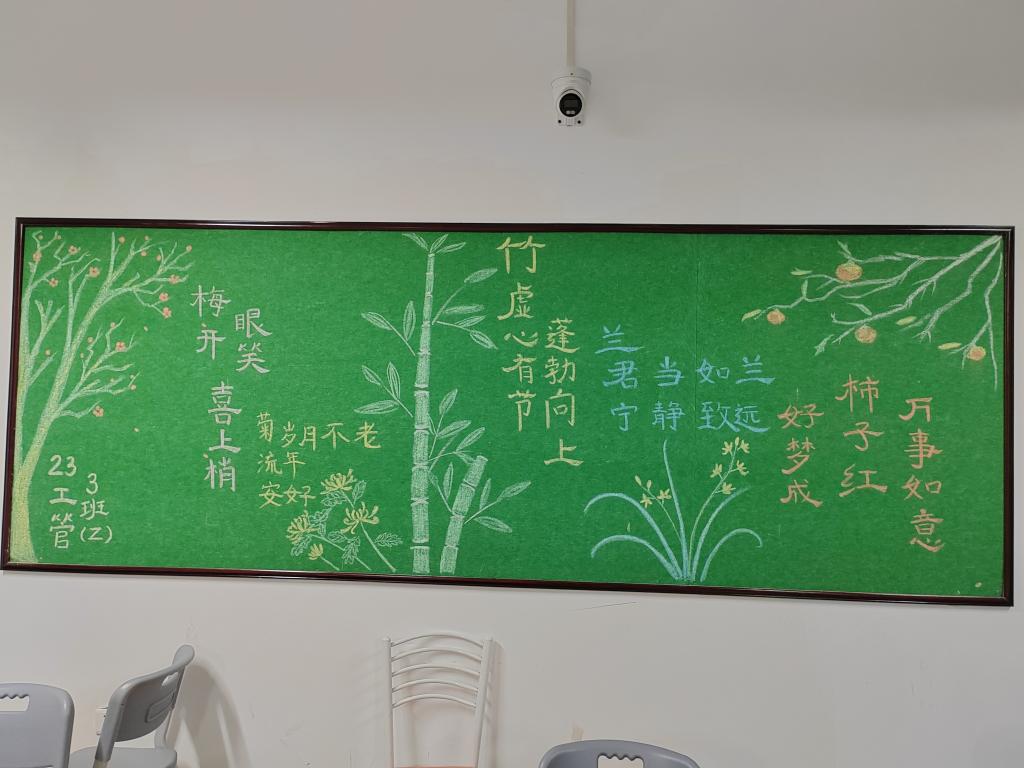 梅开
眼笑
喜上梢
菊岁月不老
流年
安好
竹虚心有节
蓬勃向上
兰
君当如兰
宁静致远
好梦成
柿子红
万事如意
23工管
3班(Z)